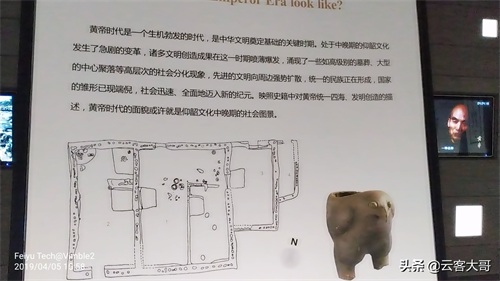 mperor Era look like?
黄帝时代是一个生机勃发的时代，是中华文明奠定基础的关键时期。处于中晚期的仰韶文化
发生了急剧的变革，诸多文明创造成果在这一时期喷薄爆发，涌现了一些如高级别的墓葬、大型
的中心聚落等高层次的社会分化现象，先进的文明向周边强势扩散，统一的民族正在形成，国家
的雏形已现端倪，社会迅速、全面地迈入新的纪元。映照史籍中对黄帝统一四海、发明创造的描
述，黄帝时代的面貌或许就是仰韶文化中晚期的社会图景。
N
Feiyu Tech@Vimble2
2019/04/05
头条 @云客大哥